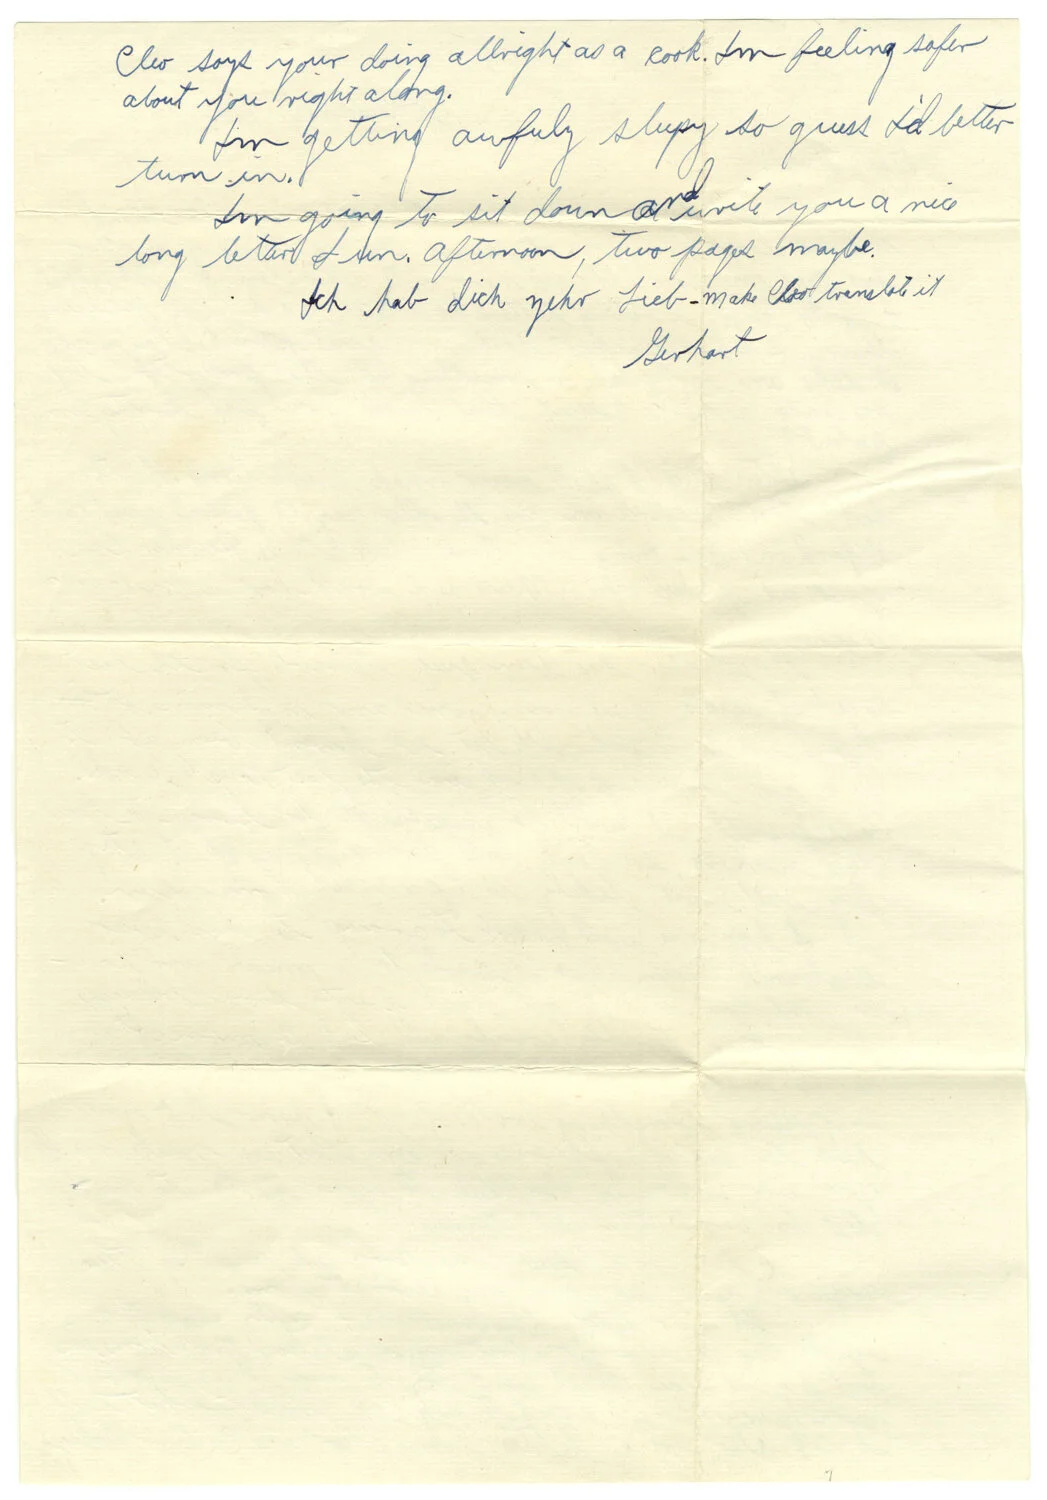 Cleo says your doing allright as a cook. Im feeling safer
about you right along.
Im getting awfuly sleepy so guess I'd better
turn in.
Im going to sit down and write you a nice
long letter sun. afternoon, two pages maybe.
Ich hab dich sehr Lieb - make Cleo translate it
Gerhart